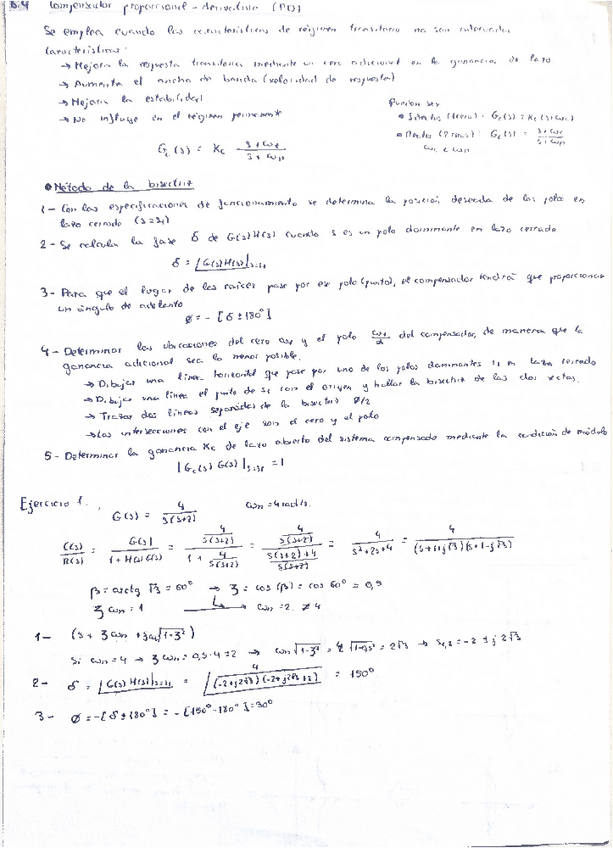 B.4 Compensador proporcional-derivativo (PD)
Se emplea cuando las características de régimen transitorio no son
Características:
→ Mejora la respuesta transitoria mediante un cero adicional en la ganancia de lazo
→ Aumenta el ancho de banda (velocidad de respuesta)
→ Mejora la estabilidad
→ No influye en el régimen permanente
Pueden ser
Gc(s) = Kc (s+ωc)
Gc(s) = (s+ωc)/(s+ωp)
ωc < ωp
Gc(s) = Kc (s+ωz)/(s+ωp)
• Método de la bisectriz
1- Con las especificaciones de funcionamiento se determina la posición deseada de los polos en
lazo cerrado (s=s1)
2- Se calcula la fase δ de G(s)H(s) cuando s es un polo dominante en lazo cerrado
δ = ∠G(s)H(s)|s=s1
3- Para que el lugar de las raíces pase por ese polo (punto), el compensador tendrá que proporcionar
un ángulo de adelanto
φ = -[δ ± 180°]
4- Determinar las ubicaciones del cero y el polo del compensador, de manera que la
ganancia adicional sea la menor posible.
→ Dibujar una línea horizontal que pase por uno de los polos dominantes s1 en lazo cerrado
→ Dibujar una línea el punto de s1 con el origen y hallar la bisectriz de las dos rectas.
→ Trazar dos líneas separadas de la bisectriz φ/2
→ Las intersecciones con el eje son el cero y el polo
5- Determinar la ganancia Kc de lazo abierto del sistema compensado mediante la condición de módulo
|Gc(s) G(s)|s=s1 = 1
Ejercicio 1.
G(s) = 4/(s(s+2)) ωn = 4 rad/s.
C(s)/R(s) = G(s)/(1+H(s)G(s)) = (4/(s(s+2)))/(1+4/(s(s+2))) = (4/(s(s+2)))/((s(s+2)+4)/(s(s+2))) = 4/(s²+2s+4) = 4/((s+1+j√3)(s+1-j√3))
β = arctg √3 = 60° → ζ = cos(β) = cos 60° = 0,5
ζωn = 1 → ωn = 2 ≠ 4
1- (s + ζωn + jωn√(1-ζ²))
Si ωn = 4 → ζωn = 0,5·4 = 2 → ωn√(1-ζ²) = 4√(1-0,5²) = 2√3 → s1,2 = -2 ± j2√3
2- δ = ∠G(s)H(s)|s=s1 = ∠4/((-2+j2√3)(-2+j2√3+2)) = 150°
3- φ = -[δ ± 180°] = -[150° - 180°] = 30°